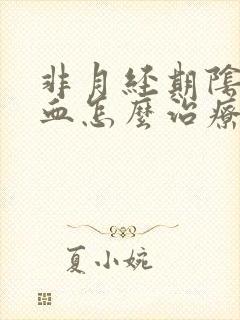 非月經期陰
血怎麼治療
夏小婉